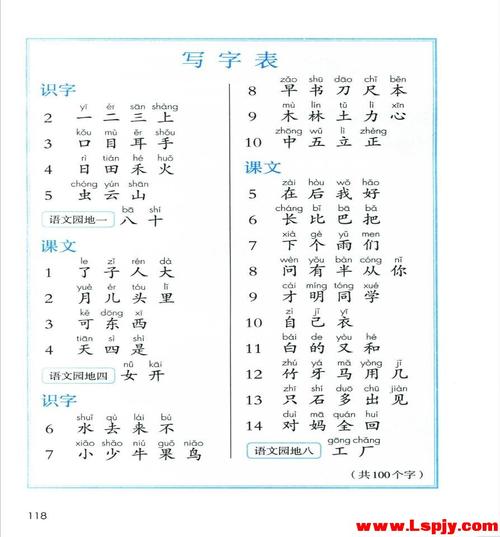 写字表
识字
yī èr sān shàng
2 一 二 三 上
kǒu mù ěr shǒu
3 口 目 耳 手
rì tián hé huǒ
4 日 田 禾 火
chóng yún shān
5 虫 云 山
bā shí
语文园地一 八 十
课文
le zǐ rén dà
1 了 子 人 大
yuè ér tóu lǐ
2 月 儿 头 里
kě dōng xī
3 可 东 西
tiān sì shì
4 天 四 是
nǚ kāi
语文园地四 女 开
识字
shuǐ qù lái bù
6 水 去 来 不
xiǎo shǎo niú guǒ niǎo
7 小 少 牛 果 鸟
zǎo shū dāo chǐ běn
8 早 书 刀 尺 本
mù lín tǔ lì xīn
9 木 林 土 力 心
zhōng wǔ lì zhèng
10 中 五 立 正
课文
zài hòu wǒ hǎo
5 在 后 我 好
cháng bǐ bā bǎ
6 长 比 巴 把
xià gè yǔ men
7 下 个 雨 们
wèn yǒu bàn cóng nǐ
8 问 有 半 从 你
cái míng tóng xué
9 才 明 同 学
zì jǐ yī
10 自 己 衣
bái de yòu hé
11 白 的 又 和
zhú yá mǎ yòng jǐ
12 竹 牙 马 用 几
zhǐ shí duō chū jiàn
13 只 石 多 出 见
duì mā quán huí
14 对 妈 全 回
gōng chǎng
语文园地八 工 厂
(共100个字)
118
www.Lspjy.com